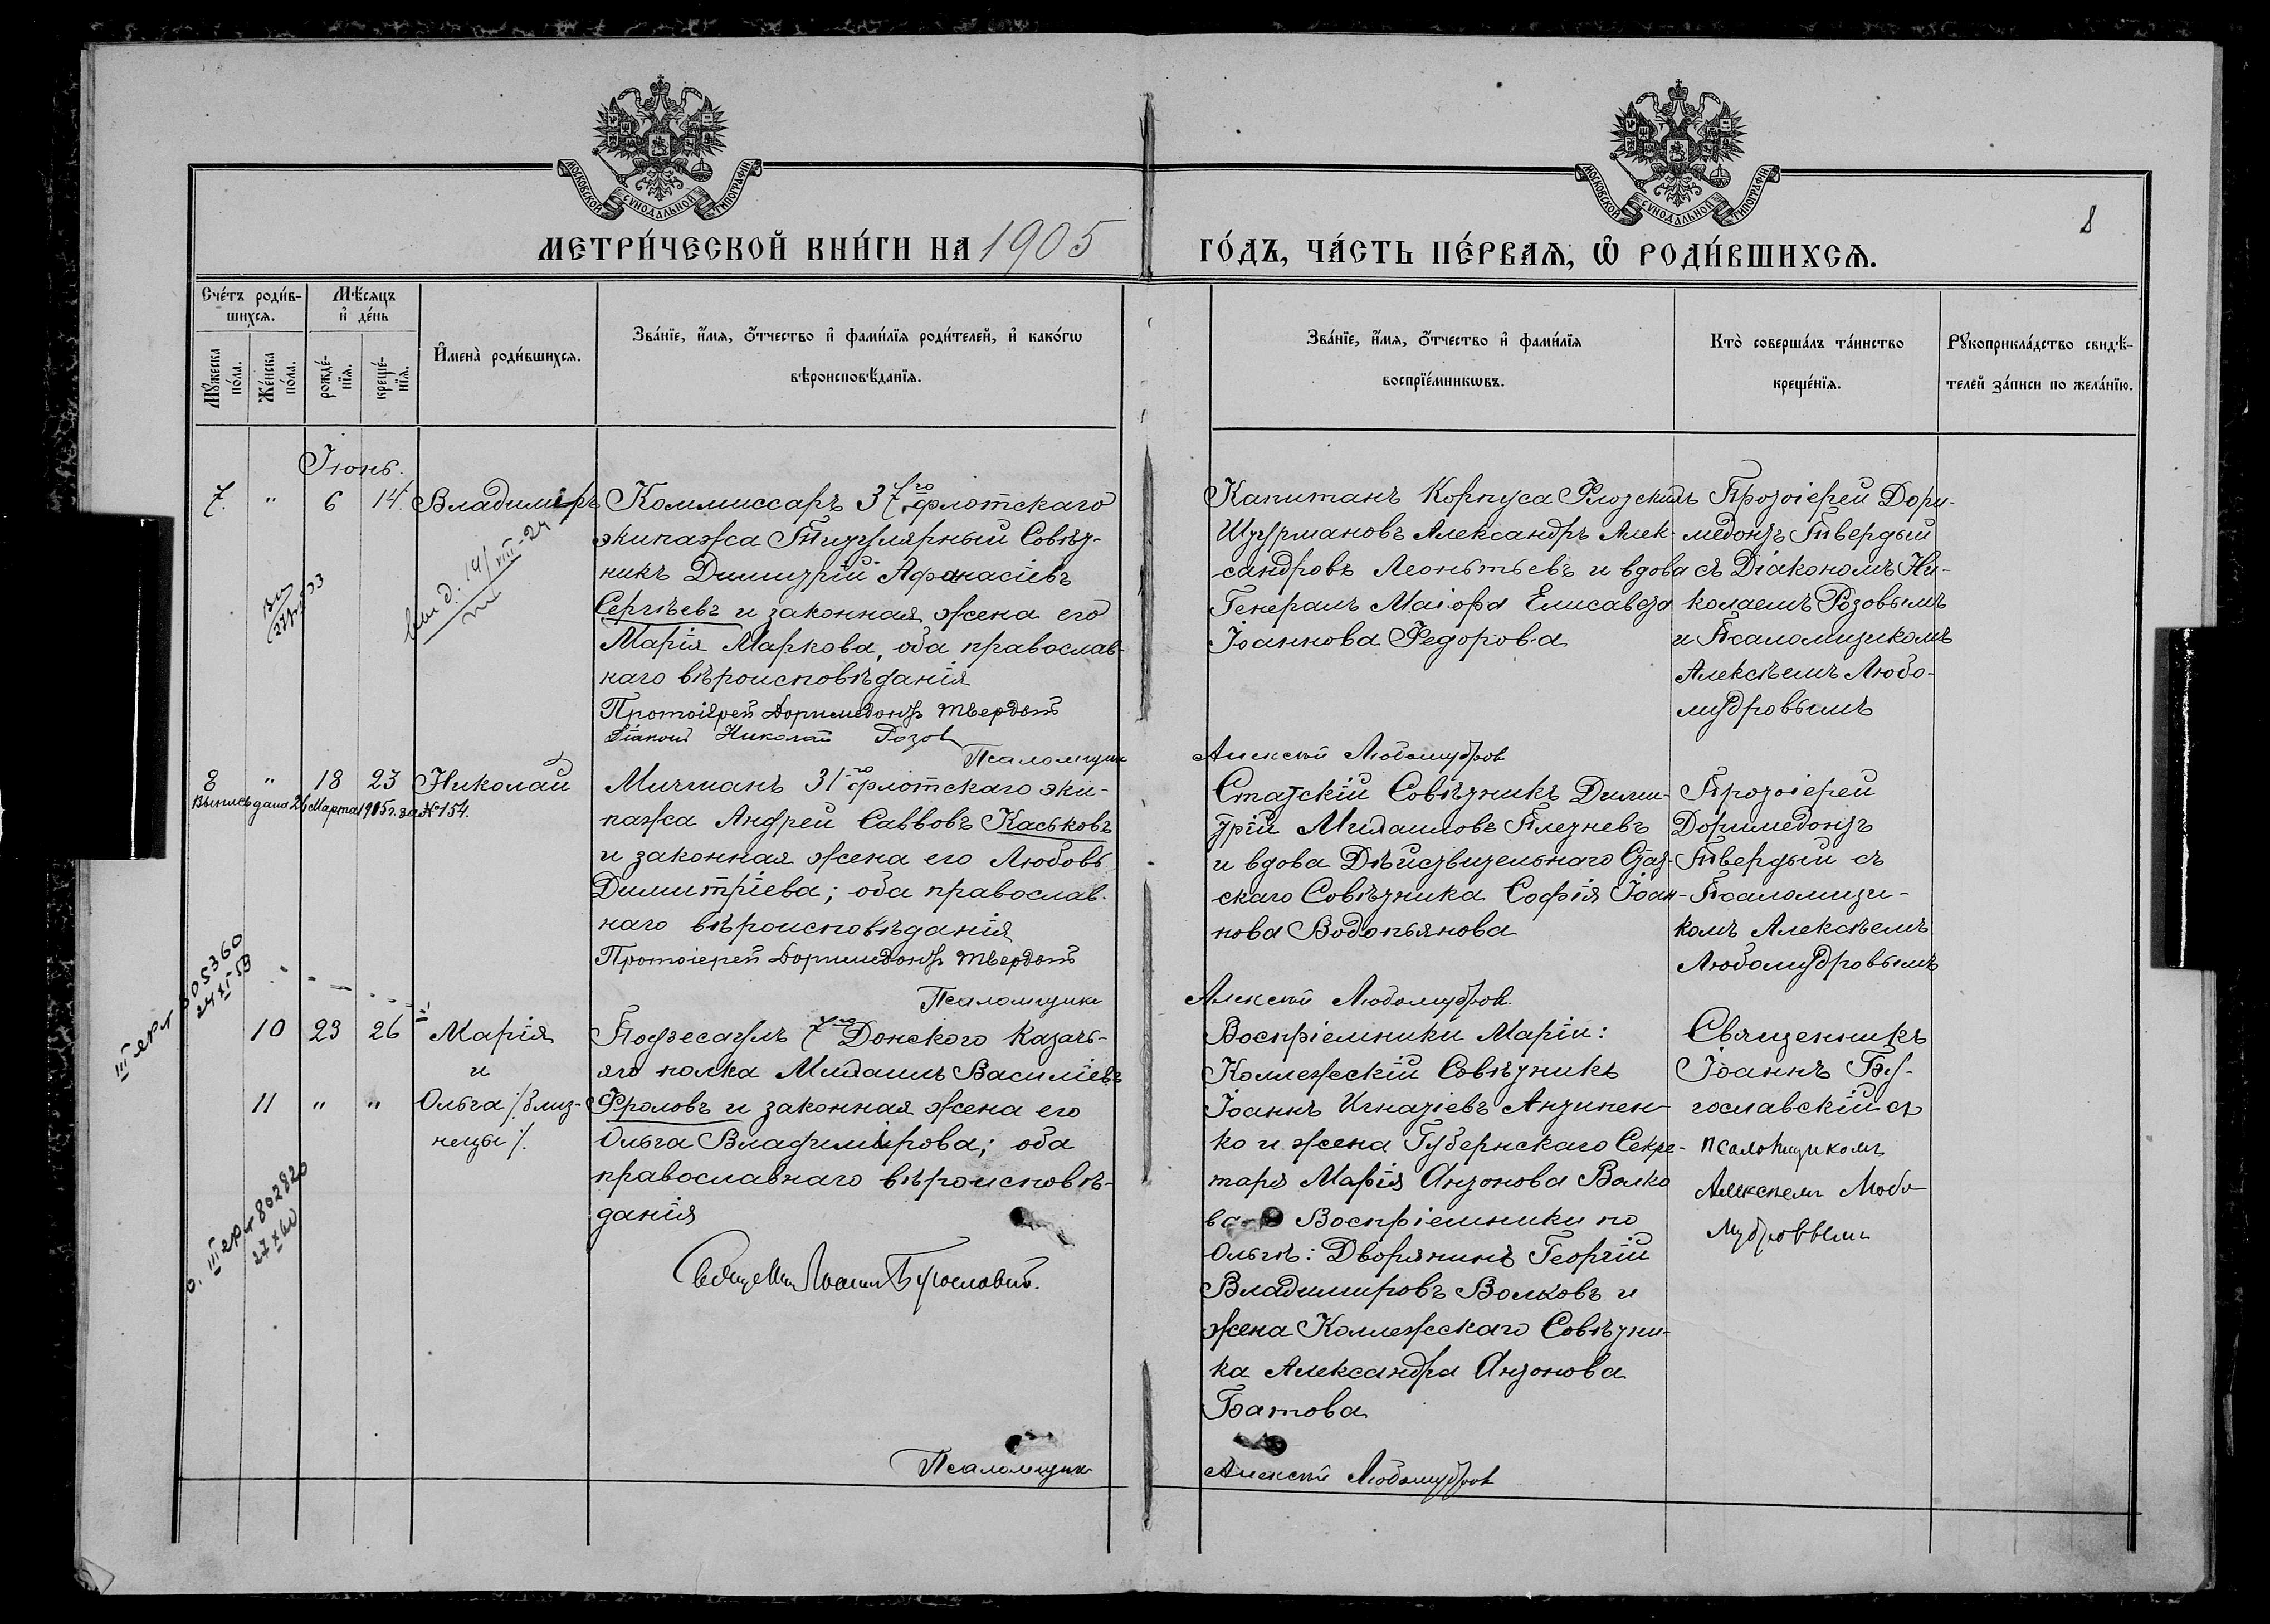 МОСКОВСКОЙ СѴНОДАЛЬНОЙ ТИПОГРАФІИ
МОСКОВСКОЙ СѴНОДАЛЬНОЙ ТИПОГРАФІИ
8
МЕТРИ́ЧЕСКОЙ КНИ́ГИ НА 1905
ГО́ДЪ, ЧА́СТЬ ПЕ́РВАѦ, Ѡ҆ РОДИ́ВШИХСѦ.
Сче́тъ роди́в-
шихсѧ.
Мѣ́сѧцъ
и҆ де́нь
Мꙋ́жеска
по́ла.
Же́нска
по́ла.
рожде́-
нїѧ.
креще́-
нїѧ.
И҆мена̀ роди́вшихсѧ.
Зва́нїе, и҆́мѧ, ѻ҆́тчество и҆ фами́лїѧ роди́телей, и҆ како́гѡ
вѣроисповѣ́данїѧ.
Зва́нїе, и҆́мѧ, ѻ҆́тчество и҆ фами́лїѧ
воспрїе́мникѡвъ.
Кто̀ соверша́лъ та́инство
креще́нїѧ.
Рꙋкоприкла́дство свидѣ́-
телей за́писи по жела́нїю.
Іюнь.
7. " 6 14. Владиміръ
Коммиссаръ 37го флотскаго
экипажа Титулярный Совѣт-
никъ Димитрій Афанасіевъ
Сергѣевъ и законная жена его
Марія Маркова, оба православ-
наго вѣроисповѣданія
Протоіерей Доримедонтъ Твердый
Діаконъ Николай Розов
Псаломщик Алексѣй Любомудров
Капитанъ Корпуса Флотскихъ
Штурмановъ Александръ Алек-
сандровъ Леонтьевъ и вдова
Генералъ Маіора Елисавета
Іоаннова Федорова
Протоіерей Дори-
медонтъ Твердый
съ Діакономъ Ни-
колаемъ Розовымъ
и Псаломщикомъ
Алексѣемъ Любо-
мудровымъ
8 " 18 23 Николай
Выпись дана 26 Марта 1905 г. за № 154.
Мичманъ 31го флотскаго эки-
пажа Андрей Саввовъ Каськовъ
и законная жена его Любовь
Димитріева; оба православ-
наго вѣроисповѣданія
Протоіерей Доримедонтъ Твердый
Псаломщик Алексѣй Любомудров.
Статскій Совѣтникъ Дими-
трій Михаиловъ Плетневъ
и вдова Дѣйствительнаго Стат-
скаго Совѣтника Софія Іоан-
нова Водопьянова
Протоіерей
Доримедонтъ
Твердый съ
Псаломщи-
комъ Алексѣемъ
Любомудровымъ
III 805360
24 XI 59
10 23 26 Марія
и
11 " " Ольга /близ-
нецы/.
III 802820
27 X 60
Подъесаулъ 7го Донского Казачь-
яго полка Михаилъ Василіевъ
Фроловъ и законная жена его
Ольга Владимірова; оба
православнаго вѣроисповѣ-
данія
Священник Іоаннъ Богославскій.
Псаломщик Алексѣй Любомудров
Воспріемники Маріи:
Коллежскій Совѣтникъ
Іоаннъ Игнатіевъ Антипен-
ко и жена Губернскаго Секре-
таря Марія Антонова Волко
ва Воспріемники по
Ольгѣ: Дворянинъ Георгій
Владимировъ Волковъ и
жена Коллежскаго Совѣтни-
ка Александра Антонова
Батова
Священникъ
Іоаннъ Бо-
гославскій съ
псаломщикомъ
Алексѣемъ Любо-
мудровымъ